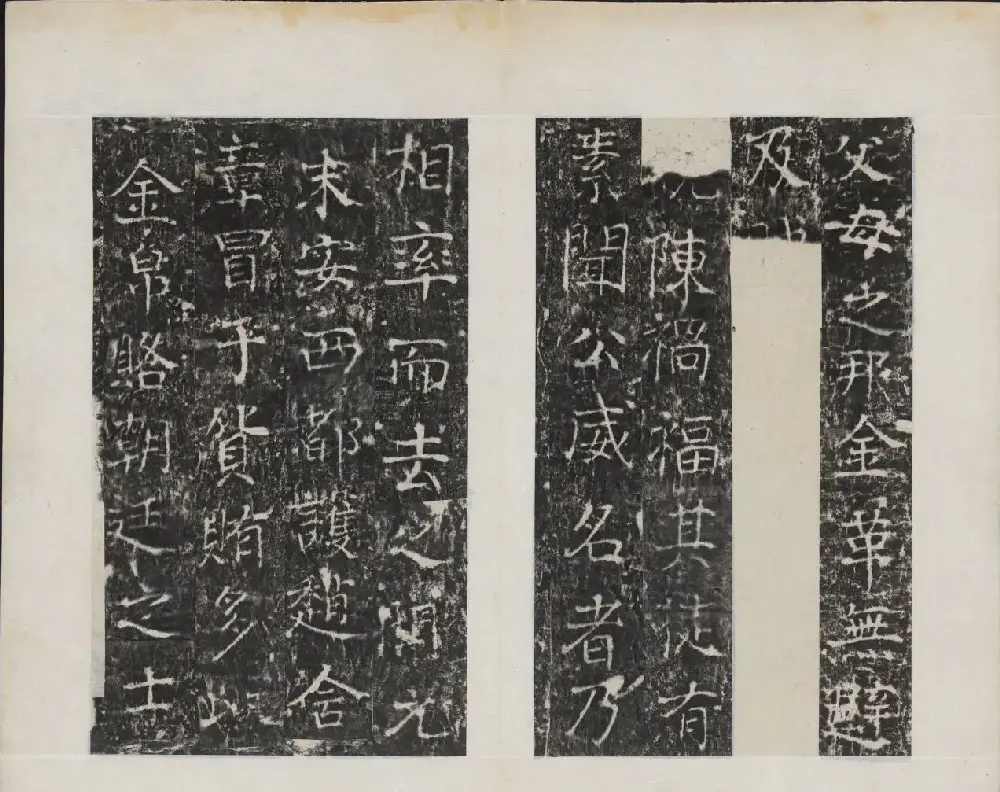 父母之邦金革無避
及
陳禍福其徒有
素聞公威名者乃
相率而去之開元
末安西都護趙含
章冒于貨賄多以
金帛賂朝廷之士